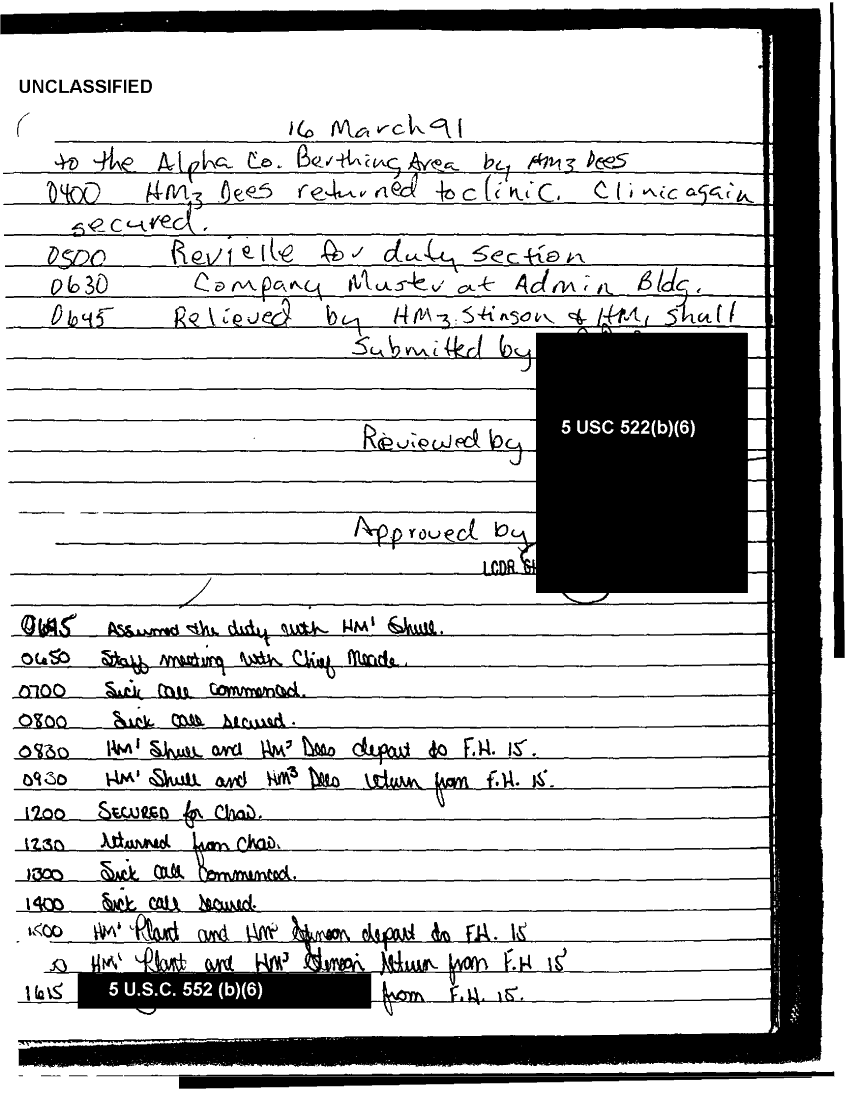 UNCLASSIFIED
16 March 91
to the Alpha Co. Berthing Area by HM3 Dees
0400 HM3 Dees returned to clinic. Clinic again
secured.
0500 Revielle for duty section
0630 Company Muster at Admin Bldg.
0645 Relieved by HM3 Stinson & HM1 Shull
Submitted by
5 USC 522(b)(6)
Reviewed by
Approved by
LCDR
0645 Assumed the duty with HM1 Shull.
0650 Staff meeting with Chief Meade.
0700 Sick call commenced.
0800 Sick call secured.
0830 HM1 Shull and HM3 Dees depart to F.H. 15.
0930 HM1 Shull and HM3 Dees return from F.H. 15.
1200 SECURED for Chow.
1230 returned from Chow.
1300 Sick call Commenced.
1400 Sick call secured.
1500 HM1 Plant and HM3 Stinson depart to F.H. 15
HM1 Plant and HM3 Stinson return from F.H 15
1615 5 U.S.C. 552 (b)(6) from F.H. 15.